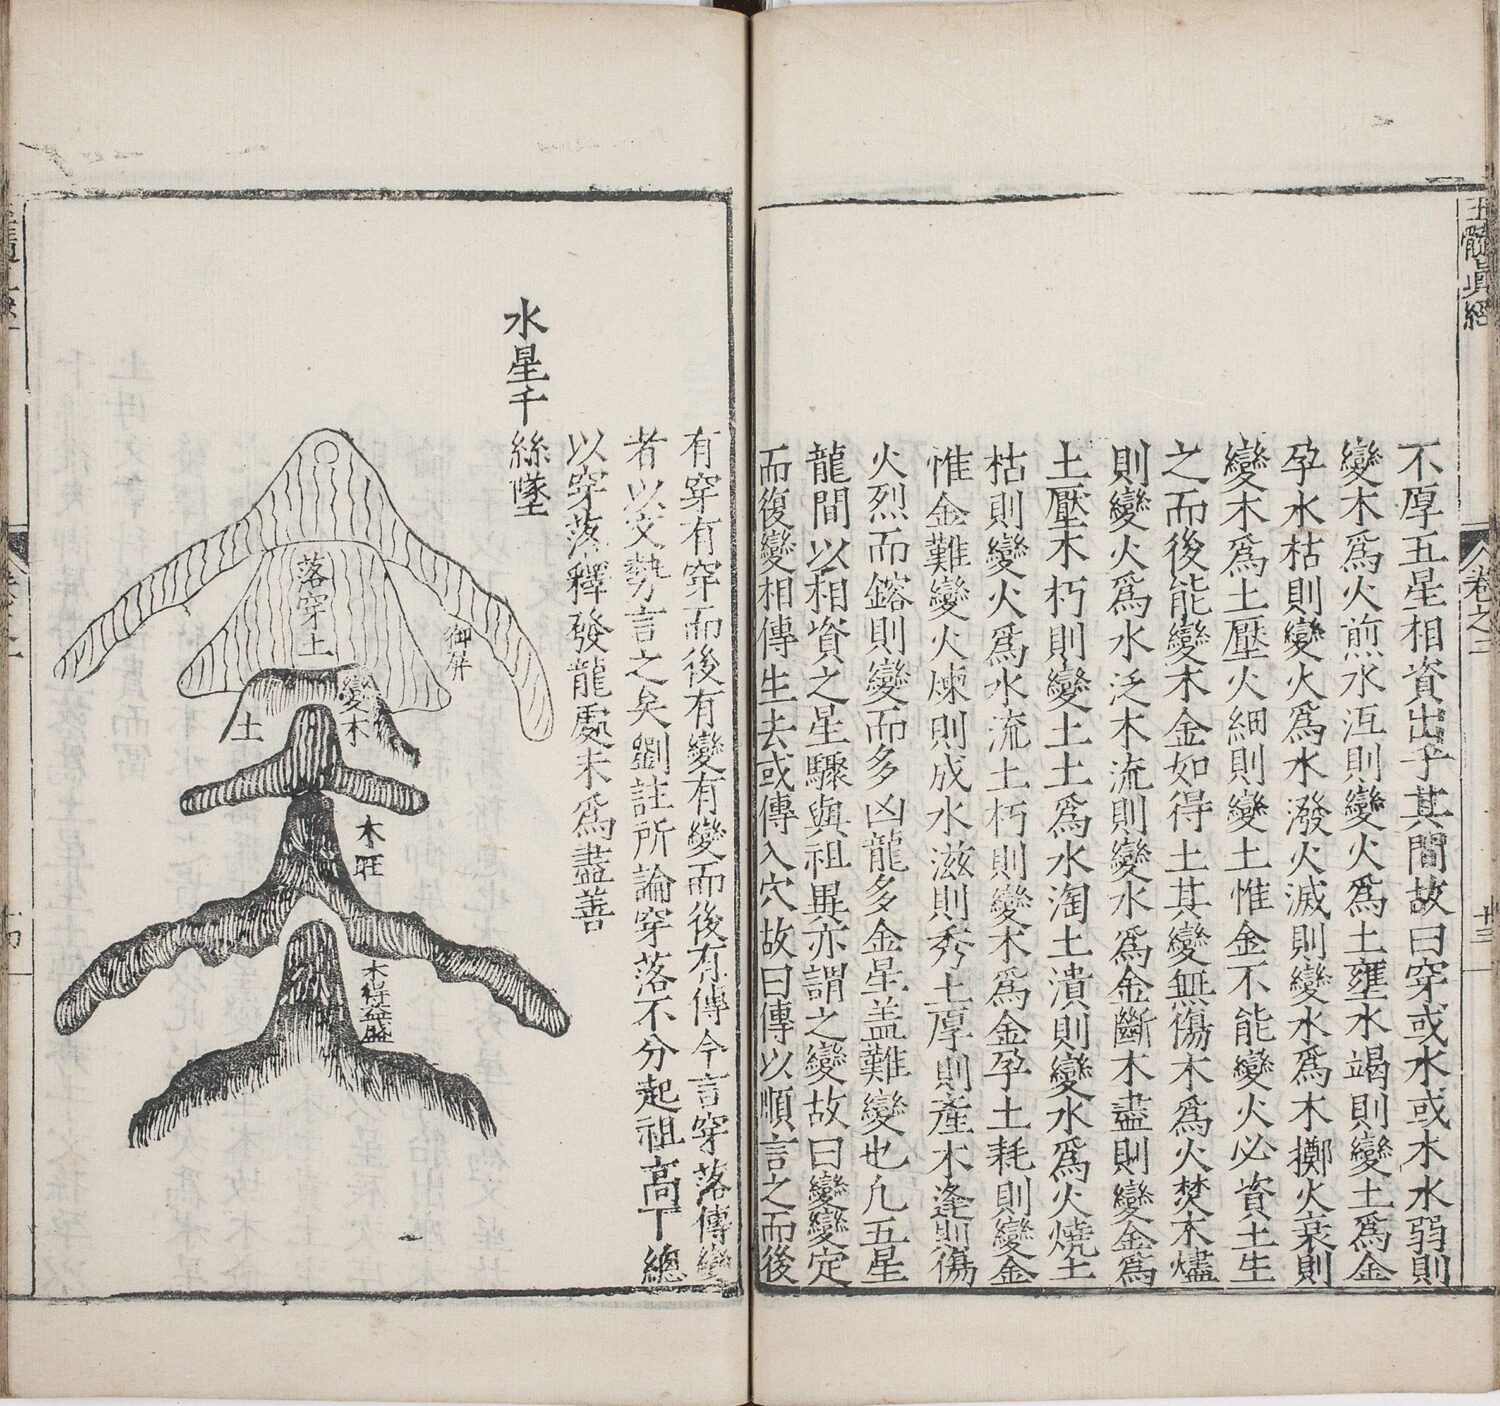 玉髓眞經
卷之二
十三
不厚五星相資出乎其間故曰穿或水或木水弱則
變木爲火煎水沍則變火爲土壅水竭則變土爲金
孕水枯則變火爲水潑火滅則變水爲木擲火衰則
變木爲土壓火細則變土惟金不能變火必資土生
之而後能變木金如得土其變無傷木爲火焚木燼
則變火爲水泛木流則變水爲金斷木盡則變金爲
土壓木朽則變土土爲水淘土潰則變水爲火燒土
枯則變火爲水流土朽則變木爲金孕土耗則變金
惟金難變火煉則成水滋則秀土厚則產木逢則傷
火烈而鎔則變而多凶龍多金星盖難變也凡五星
龍間以相資之星驟與祖異亦謂之變故曰變變定
而復變相傳生去或傳入穴故曰傳以順言之而後
有穿有穿而後有變有變而後有傳今言穿落傳變
者以文勢言之矣劉註所論穿落不分起祖高下總
以穿落釋發龍處未爲盡善
水星千絲墜
落穿土
御屏
變木
土
木旺
木得益盛